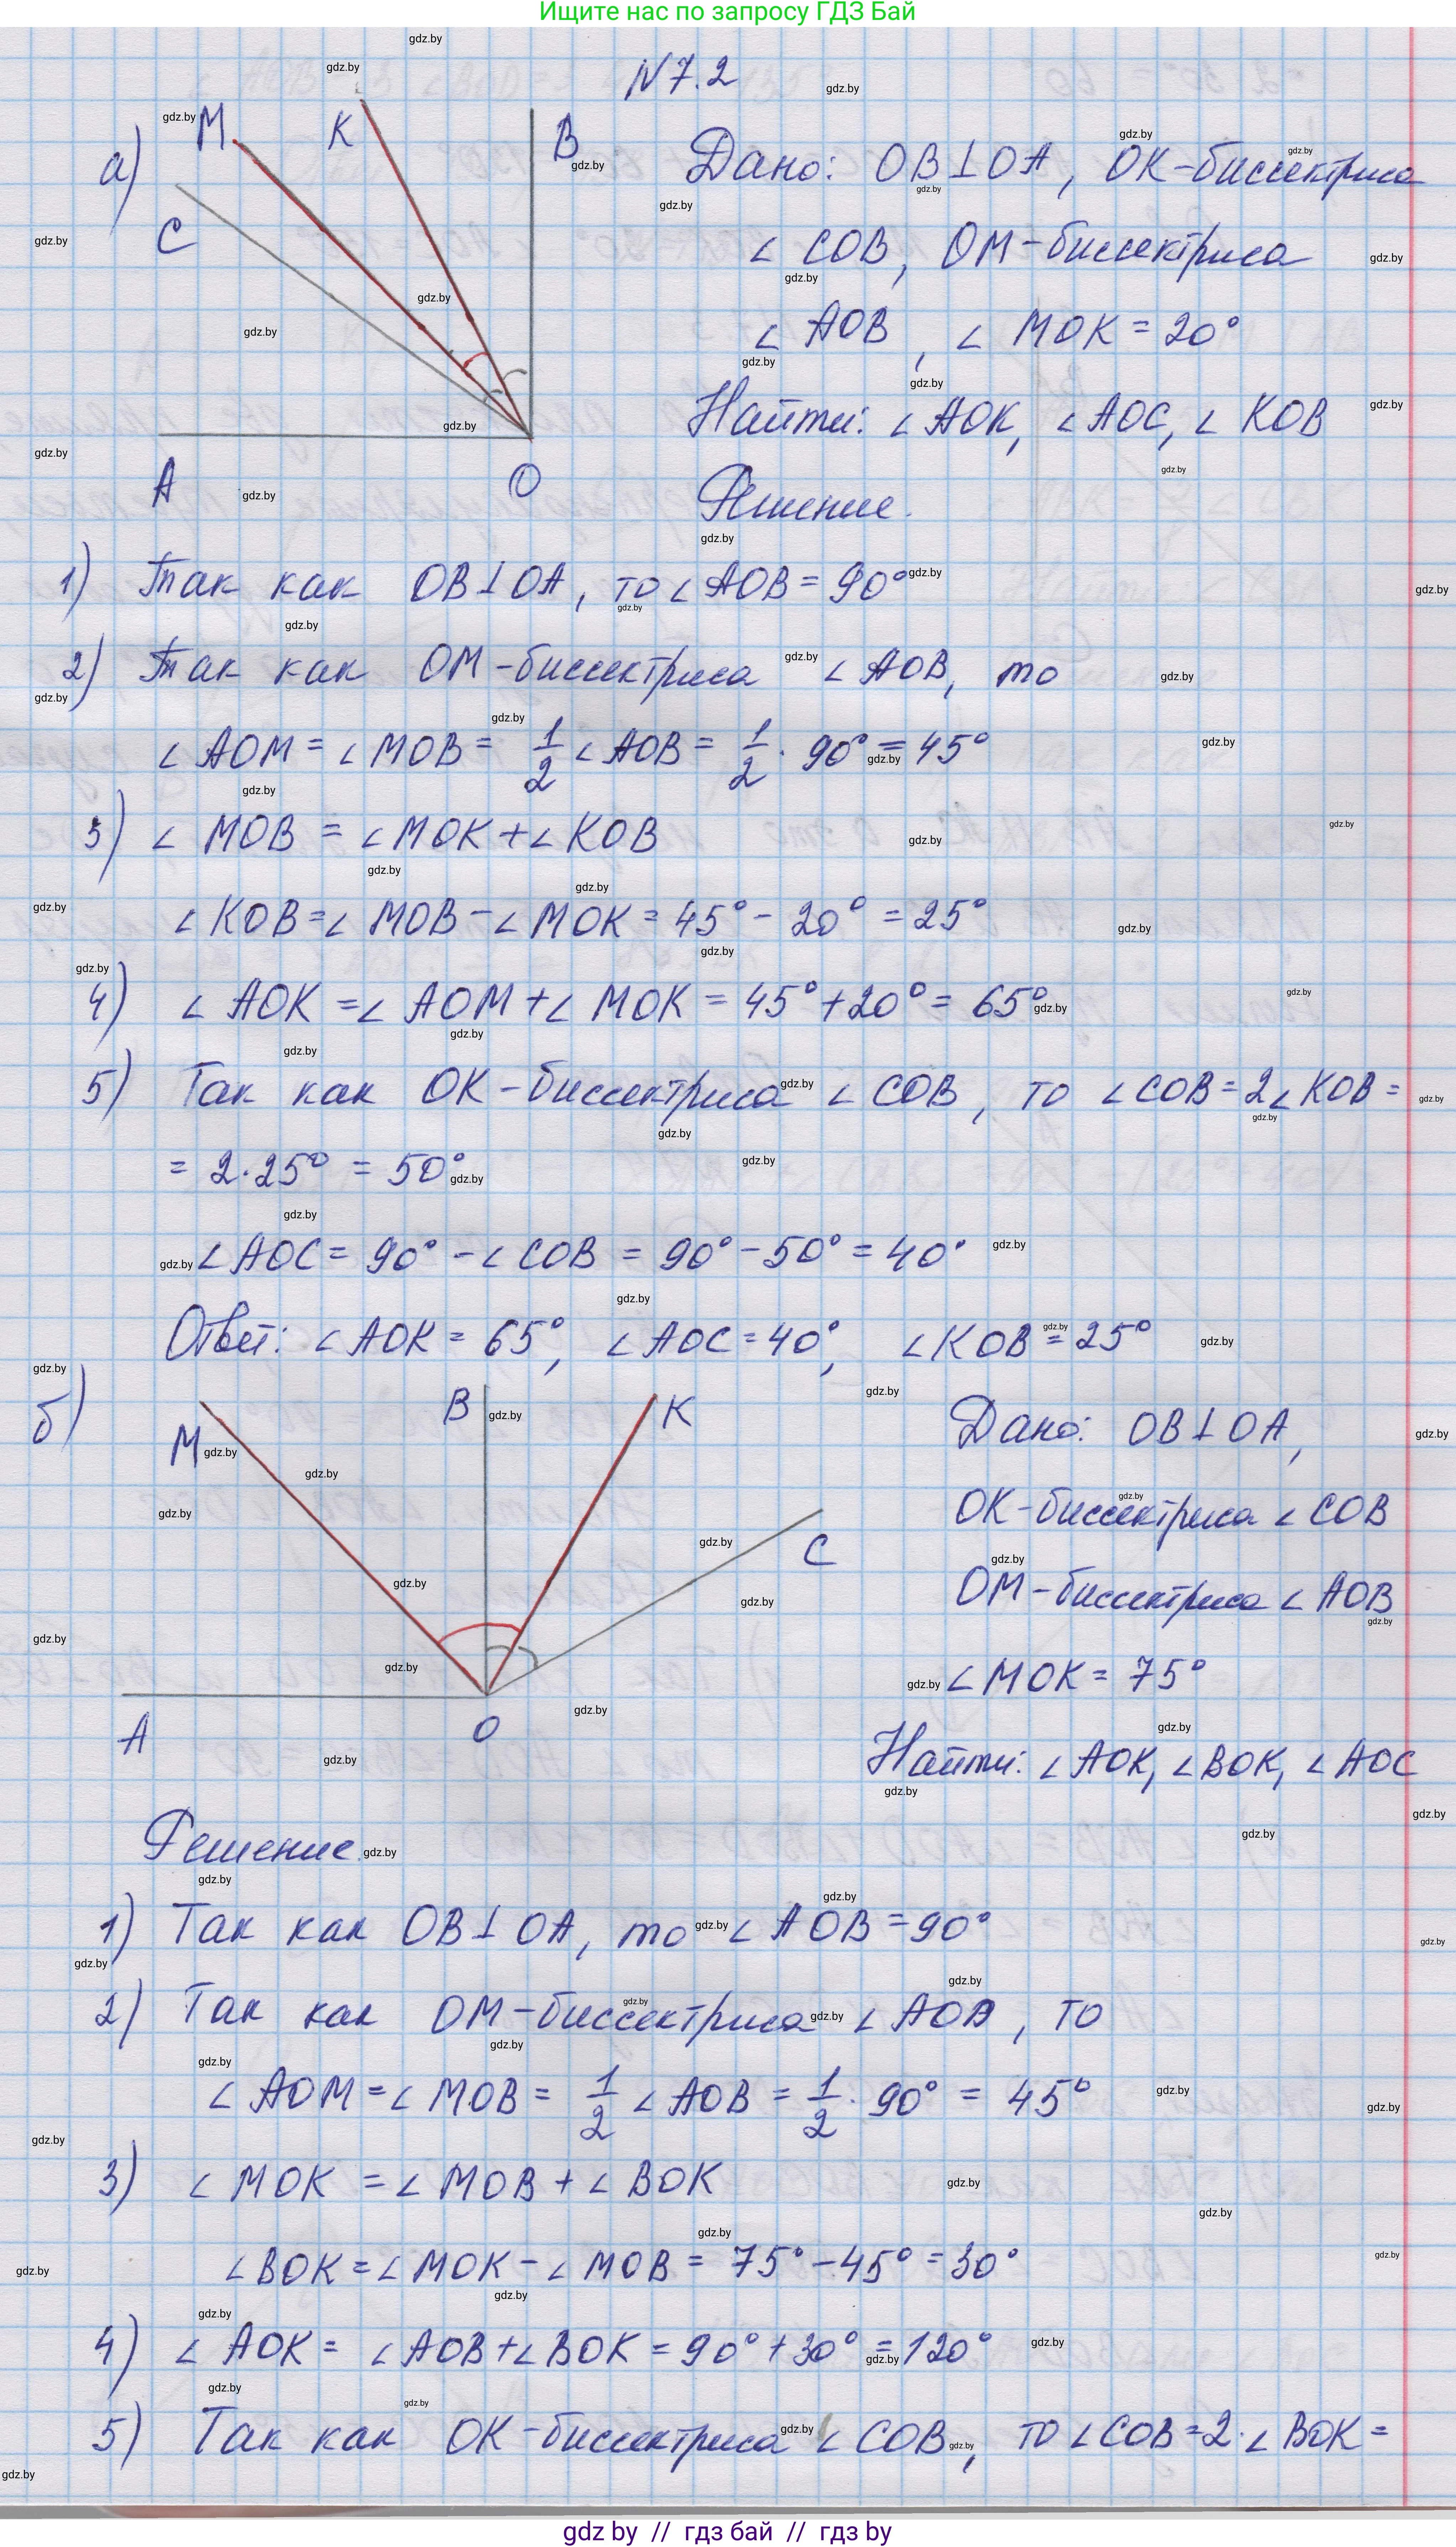 Ищите нас по запросу ГДЗ Бай
N 7.2
а)
M
K
B
C
A
O
Дано: OB⊥OA, OK-биссектриса
∠ COB, OM-биссектриса
∠ AOB, ∠ MOK = 20°
Найти: ∠ AOK, ∠ AOC, ∠ KOB
Решение.
1) Так как OB⊥OA, то ∠ AOB = 90°
2) Так как OM-биссектриса ∠ AOB, то
∠ AOM = ∠ MOB = 1/2 ∠ AOB = 1/2 · 90° = 45°
3) ∠ MOB = ∠ MOK + ∠ KOB
∠ KOB = ∠ MOB - ∠ MOK = 45° - 20° = 25°
4) ∠ AOK = ∠ AOM + ∠ MOK = 45° + 20° = 65°
5) Так как OK-биссектриса ∠ COB, то ∠ COB = 2∠ KOB =
= 2·25° = 50°
∠ AOC = 90° - ∠ COB = 90° - 50° = 40°
Ответ: ∠ AOK = 65°, ∠ AOC = 40°, ∠ KOB = 25°
б)
M
B
K
C
A
O
Дано: OB⊥OA,
OK-биссектриса ∠ COB
OM-биссектриса ∠ AOB
∠ MOK = 75°
Найти: ∠ AOK, ∠ BOK, ∠ AOC
Решение.
1) Так как OB⊥OA, то ∠ AOB = 90°
2) Так как OM-биссектриса ∠ AOB, то
∠ AOM = ∠ MOB = 1/2 ∠ AOB = 1/2 · 90° = 45°
3) ∠ MOK = ∠ MOB + ∠ BOK
∠ BOK = ∠ MOK - ∠ MOB = 75° - 45° = 30°
4) ∠ AOK = ∠ AOB + ∠ BOK = 90° + 30° = 120°
5) Так как OK-биссектриса ∠ COB, то ∠ COB = 2·∠ BOK =
gdz by // гдз бай // гдз by